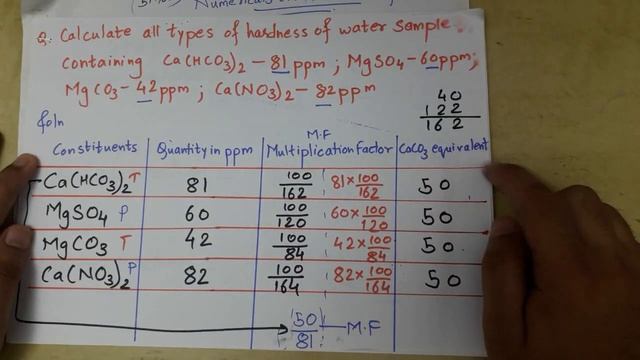 Numericals
Q. Calculate all types of hardness of water sample
containing Ca(HCO3)2 - 81 ppm ; MgSO4 - 60ppm;
MgCO3 - 42ppm ; Ca(NO3)2 - 82ppm
40
122
162
Soln
M.F
Constituents Quantity in ppm Multiplication factor CaCO3 equivalent
Ca(HCO3)2 T 81 100/162 81×100/162 50
MgSO4 P 60 100/120 60×100/120 50
MgCO3 T 42 100/84 42×100/84 50
Ca(NO3)2 P 82 100/164 82×100/164 50
50/81 M.F